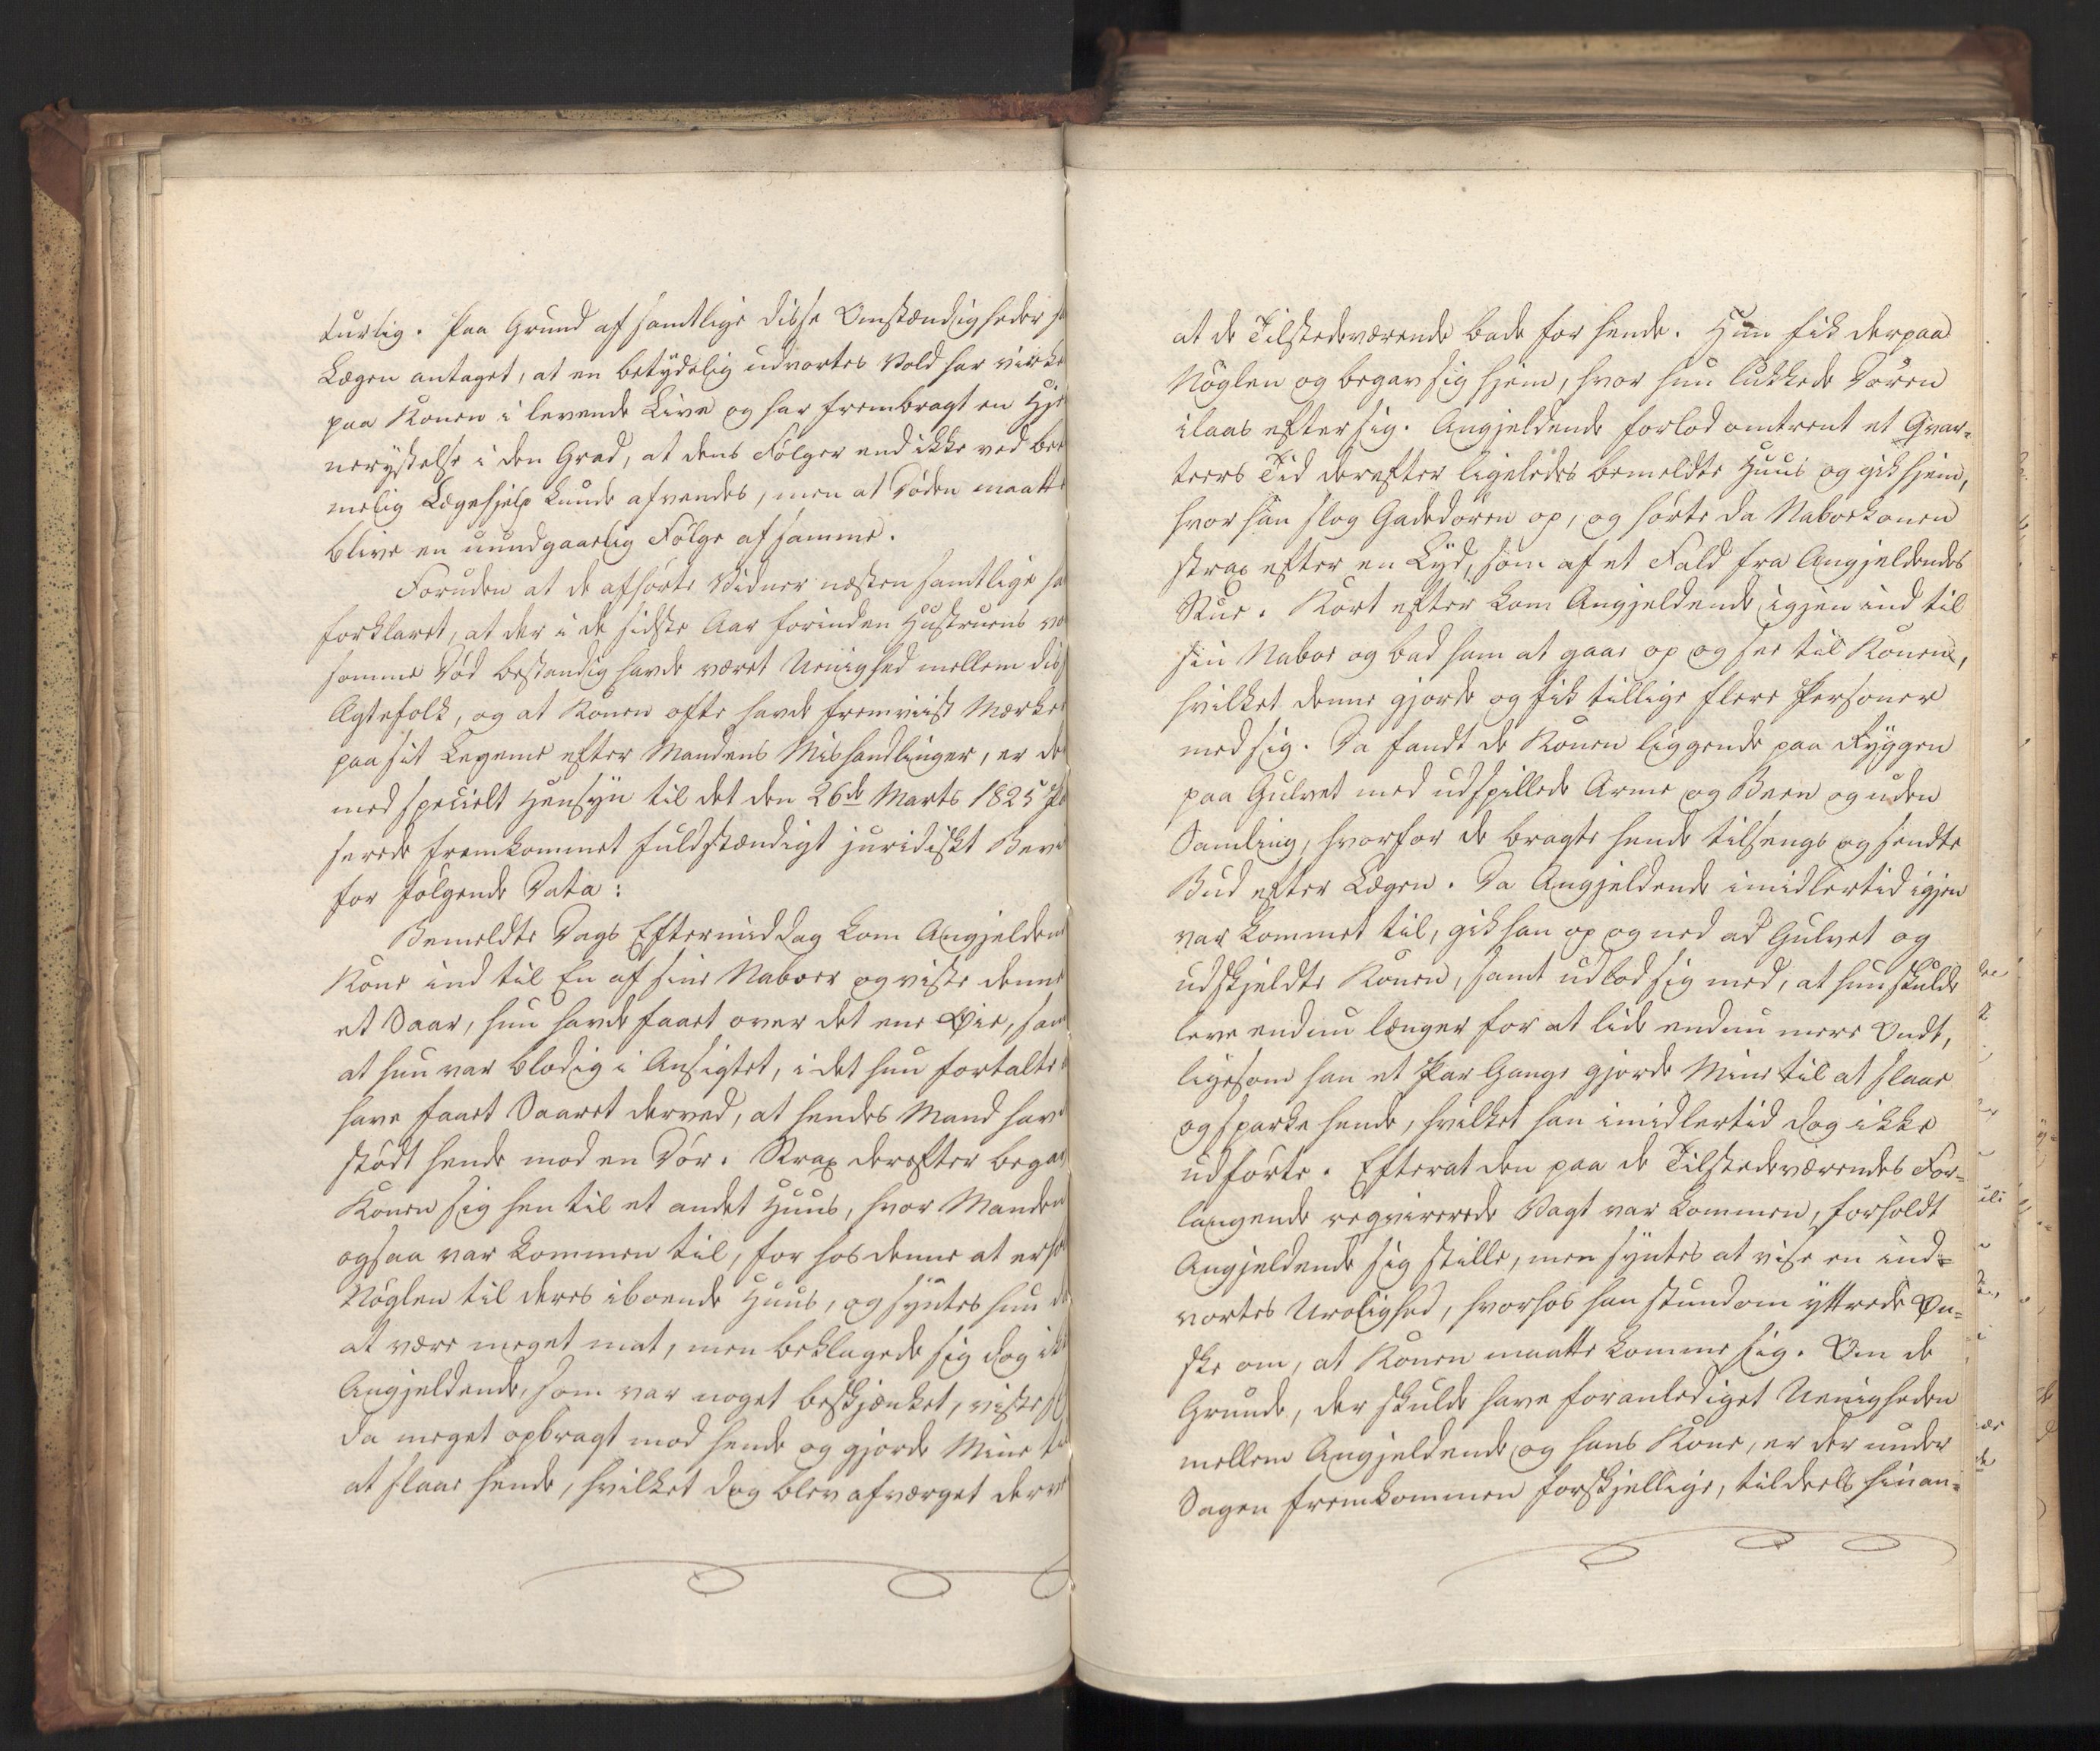 turlig. Paa Grund af samtlige disse Omstændigheder h
Lægen antaget, at en betydelig udvortes Vold har virke
paa Konen i levende Live og har frembragt en Hje
nerystelse i den Grad, at dens Følger end ikke ved
melig Lægehjelp kunde afvendes, men at Døden maatte
blive en uundgaaelig Følge af samme.
Foruden at de afhørte Vidner næsten samtlige ha
forklaret, at der i de sidste Aar forinden Hustruens vo
somme Død bestandig havde været Uenighed mellem diss
Ægtefolk, og at Konen ofte havde fremviist Mærker
paa sit Legeme efter Mandens Mishandlinger, er de
med specielt Hensyn til det den 26de Marts 1825
serede fremkommet fuldstændigt juridiskt Bevi
for følgende Data:
Bemeldte Dags Eftermiddag kom Angjelden
Kone ind til En af sine Naboer og viste denne
et Saar, hun havde faaet over det ene Øie, sam
at hun var blodig i Ansigtet, i det hun fortalte
have faaet Saaret derved, at hendes Mand hav
stødt hende mod en Dør. Strax derefter begav
Konen sig hen til et andet Huus, hvor Manden
ogsaa var kommen til, for hos denne at erho
Nøglen til deres iboende Huus, og syntes hun d
at være meget mat, men beklagede sig dog ik
Angjeldende, som var noget beskjænket, viste
da meget opbragt mod hende og gjorde Mine t
at slaae hende, hvilket dog blev afværget derve
at de Tilstedeværende bade for hende. Hun fik derpaa
Nøglen og begav sig hjem, hvor hun lukkede Døren
ilaas efter sig. Angjeldende forlod omtrent et Qvar-
teers Tid derefter ligeledes bemeldte Huus og gik hjem,
hvor han slog Gadedøren op, og hørte da Naboekonen
strax efter en Lyd, som af et Fald fra Angjeldendes
Stue. Kort efter kom Angjeldende igjen ind til
sin Naboe og bad ham at gaae op og see til Konen,
hvilket denne gjorde og fik tillige flere Personer
med sig. Da fandt de Konen liggende paa Ryggen
paa Gulvet med udspillede Arme og Been og uden
Samling, hvorfor de bragte hende tilsengs og sendte
Bud efter Lægen. Da Angjeldende imidlertid igjen
var kommet til, gik han op og ned ad Gulvet og
udskjeldte Konen, samt udlod sig med, at hun skulde
leve endnu længer for at lide endnu mere Ondt,
ligesom han et Par Gange gjorde Mine til at slaae
og sparke hende, hvilket han imidlertid dog ikke
udførte. Efterat den paa de Tilstedeværendes For-
langende reqvirerede Vagt var kommen, forholdt
Angjeldende sig stille, men syntes at vise en ind-
vortes Urolighed, hvorhos han stundom yttrede Øn-
ske om, at Konen maatte komme sig. Om de
Grunde, der skulde have foranlediget Uenigheden
mellem Angjeldende og hans Kone, er der under
Sagen fremkommen forskjellige, tildeels hinan-